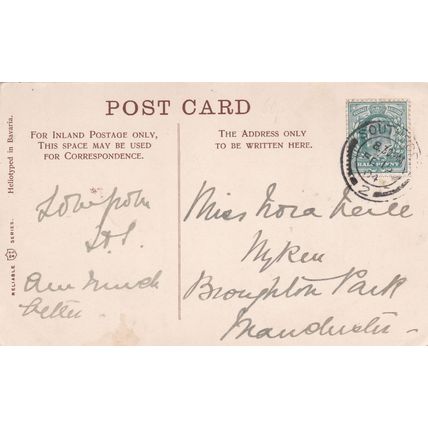 POST CARD
FOR INLAND POSTAGE ONLY,
THIS SPACE MAY BE USED
FOR CORRESPONDENCE.
THE ADDRESS ONLY
TO BE WRITTEN HERE.
Heliotyped in Bavaria.
RELIABLE SERIES.
Love from
Am much
better
Miss Nora
Broughton Park
Manchester
HALF PENNY
SOUTHPORT
04
2